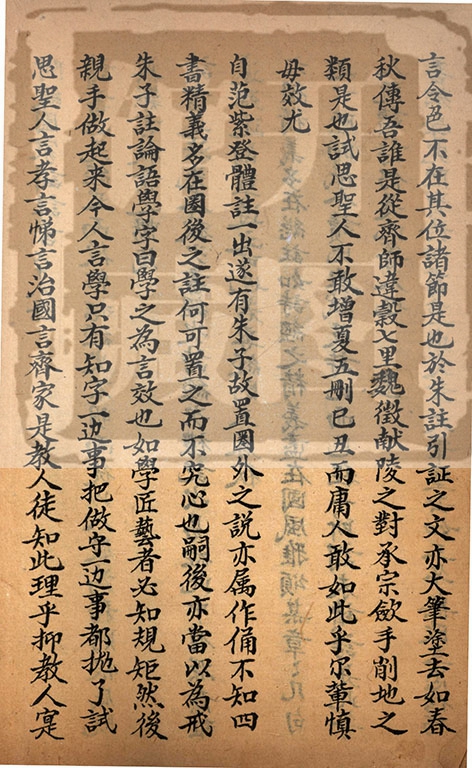 言令色不在其位諸節是也於朱註引証之文亦大筆塗去如春
秋傳吾誰是從齊師違穀七里魏徵献陵之對承宗歛手削地之
類是也試思聖人不敢增夏五刪巳丑而庸人敢如此乎尔輩慎
毋效尤
自范紫登體註一出遂有朱子故置圈外之說亦属作俑不知四
書精義多在圈後之註何可置之而不究心也嗣後亦當以為戒
朱子註論語學字曰學之為言效也如學匠藝者必知規矩然後
親手做起来今人言學只有知字一边事把做字一边事都抛了試
思聖人言孝言悌言治國言齊家是教人徒知此理乎抑教人寔